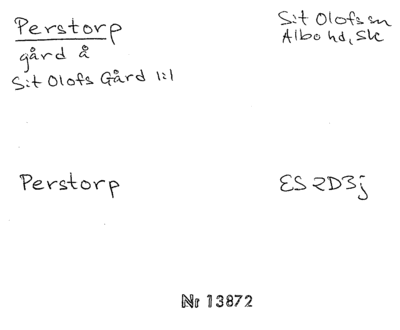 Perstorp
gård å
S:t Olofs Gård 1:1
S:t Olofs sn
Albo hd, Sk
Perstorp
ES 2D3j
Nr 13872